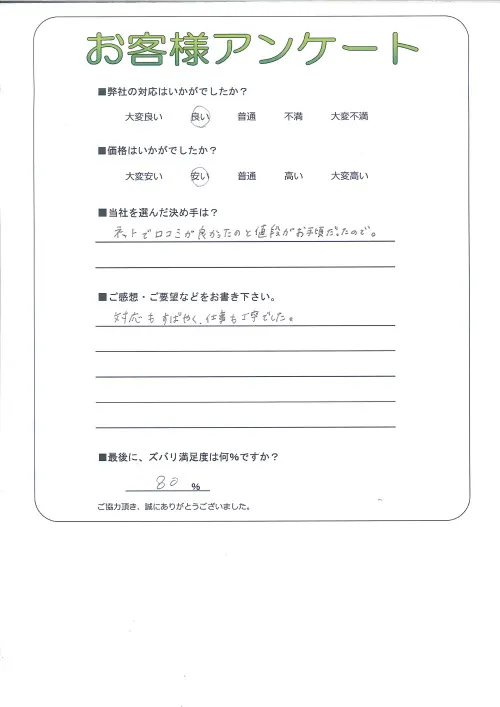 お客様アンケート
■弊社の対応はいかがでしたか？
大変良い 良い 普通 不満 大変不満
■価格はいかがでしたか？
大変安い 安い 普通 高い 大変高い
■当社を選んだ決め手は？
ネットで口コミが良かったのと値段がお手頃だったので。
■ご感想・ご要望などをお書き下さい。
対応もすばやく、仕事も丁寧でした。
■最後に、ズバリ満足度は何%ですか？
80 %
ご協力頂き、誠にありがとうございました。